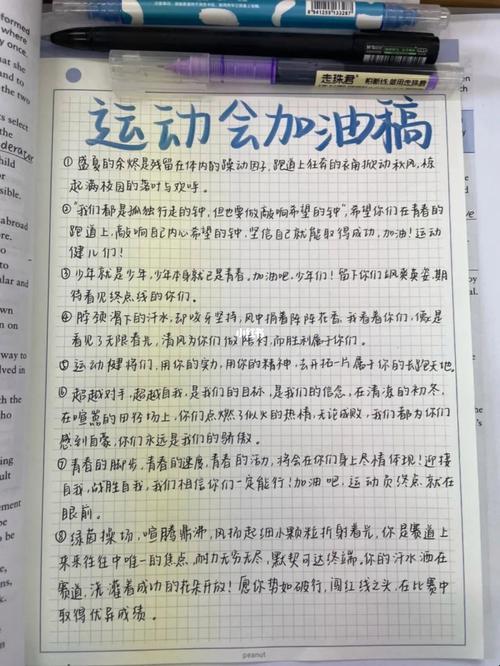 8 941259 133287
走珠君
柏断线 整用走珠君
运动会加油稿
① 盛夏的余烬是残留在体内的躁动因子,跑道上狂奔的衣角掀动秋风,掠
起满校园的落叶与欢呼。
② "我们都是孤独行走的钟,但也要做敲响希望的钟",希望你们在青春的
跑道上,敲响自己内心希望的钟,坚信自己就能取得成功,加油!运动
健儿们!
③ 少年就是少年,少年本身就已是青春。加油吧,少年们!留下你们飒爽英姿,期
待看见终点线的你们。
④ 脖颈滑下的汗水,却咬牙坚持,风中捎着阵阵花香,我看着你们,像是
看见了无限春光,清风为你们做陪衬,而胜利属于你们。
⑤ 运动健将们,用你的实力,用你的精神,去开拓一片属于你的长跑天地。
⑥ 超越对手,超越自我,是我们的目标,是我们的信念,在清凉的初冬,
在喧嚣的田径场上,你们点燃了似火的热情,无论成败,我们都为你们
感到自豪,你们永远是我们的骄傲。
⑦ 青春的脚步,青春的速度,青春的活力,将会在你们身上尽情体现!迎接
自我,战胜自我,我们相信你们一定能行!加油吧,运动员终点就在
眼前。
⑧ 绿茵操场,喧腾鼎沸,风扬起细小颗粒折射着光,你是赛道上
来来往往中唯一的焦点,耐力无穷无尽,默契可达终端。你的汗水洒在
赛道,浇灌着成功的花朵开放!愿你势如破竹,闯红线之头,在比赛中
取得优异成绩。
小红书
peanut